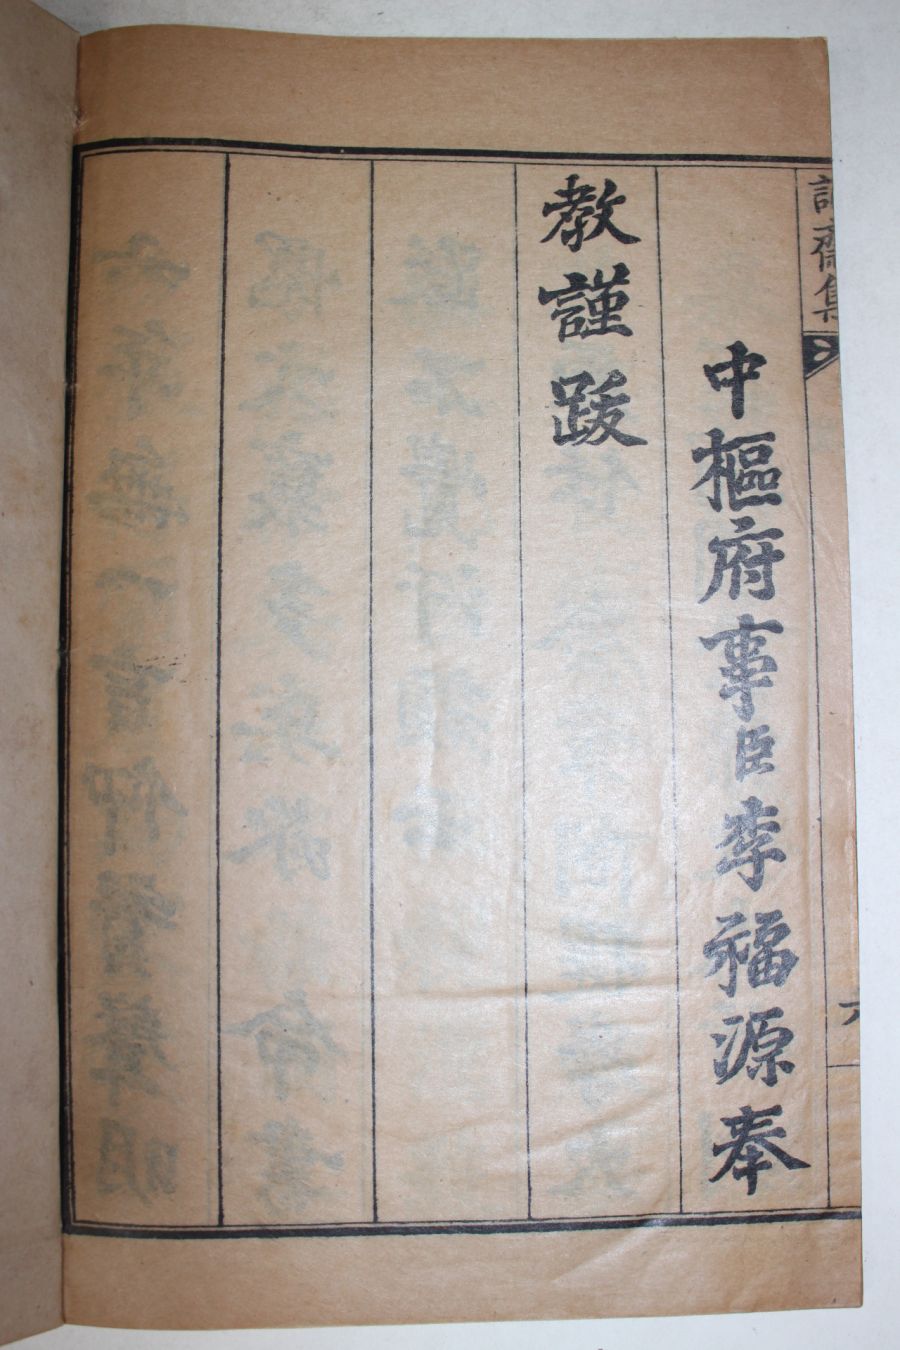 中樞府事臣李福源奉
教謹跋
齋集
六